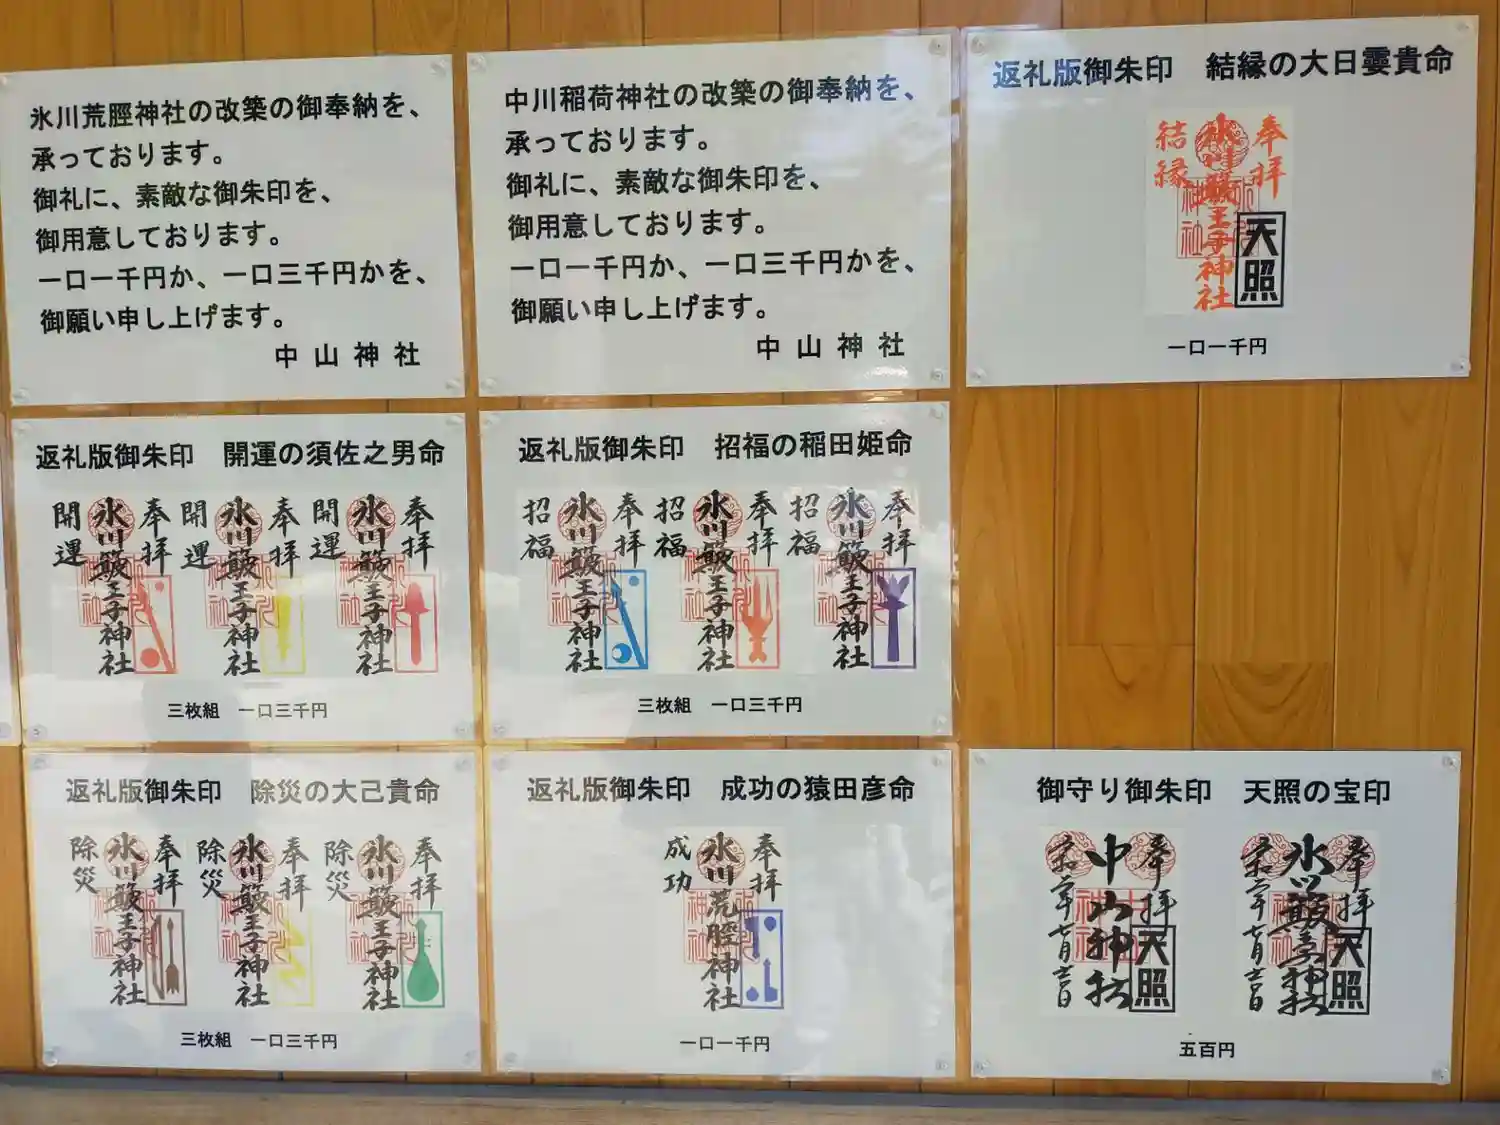 氷川荒脛神社の改築の御奉納を、
承っております。
御礼に、素敵な御朱印を、
御用意しております。
一口一千円か、一口三千円かを、
御願い申し上げます。
中山神社
中川稲荷神社の改築の御奉納を、
承っております。
御礼に、素敵な御朱印を、
御用意しております。
一口一千円か、一口三千円かを、
御願い申し上げます。
中山神社
返礼版御朱印　結縁の大日孁貴命
奉拝
氷川簸王子神社
結縁
天照
一口一千円
返礼版御朱印　開運の須佐之男命
奉拝
氷川簸王子神社
開運
奉拝
氷川簸王子神社
開運
奉拝
氷川簸王子神社
開運
三枚組　一口三千円
返礼版御朱印　招福の稲田姫命
奉拝
氷川簸王子神社
招福
奉拝
氷川簸王子神社
招福
奉拝
氷川簸王子神社
招福
三枚組　一口三千円
返礼版御朱印　除災の大己貴命
奉拝
氷川簸王子神社
除災
奉拝
氷川簸王子神社
除災
奉拝
氷川簸王子神社
除災
三枚組　一口三千円
返礼版御朱印　成功の猿田彦命
奉拝
氷川荒脛神社
成功
一口一千円
御守り御朱印　天照の宝印
奉拝
中山神社
天照
奉拝
氷川簸王子神社
天照
五百円